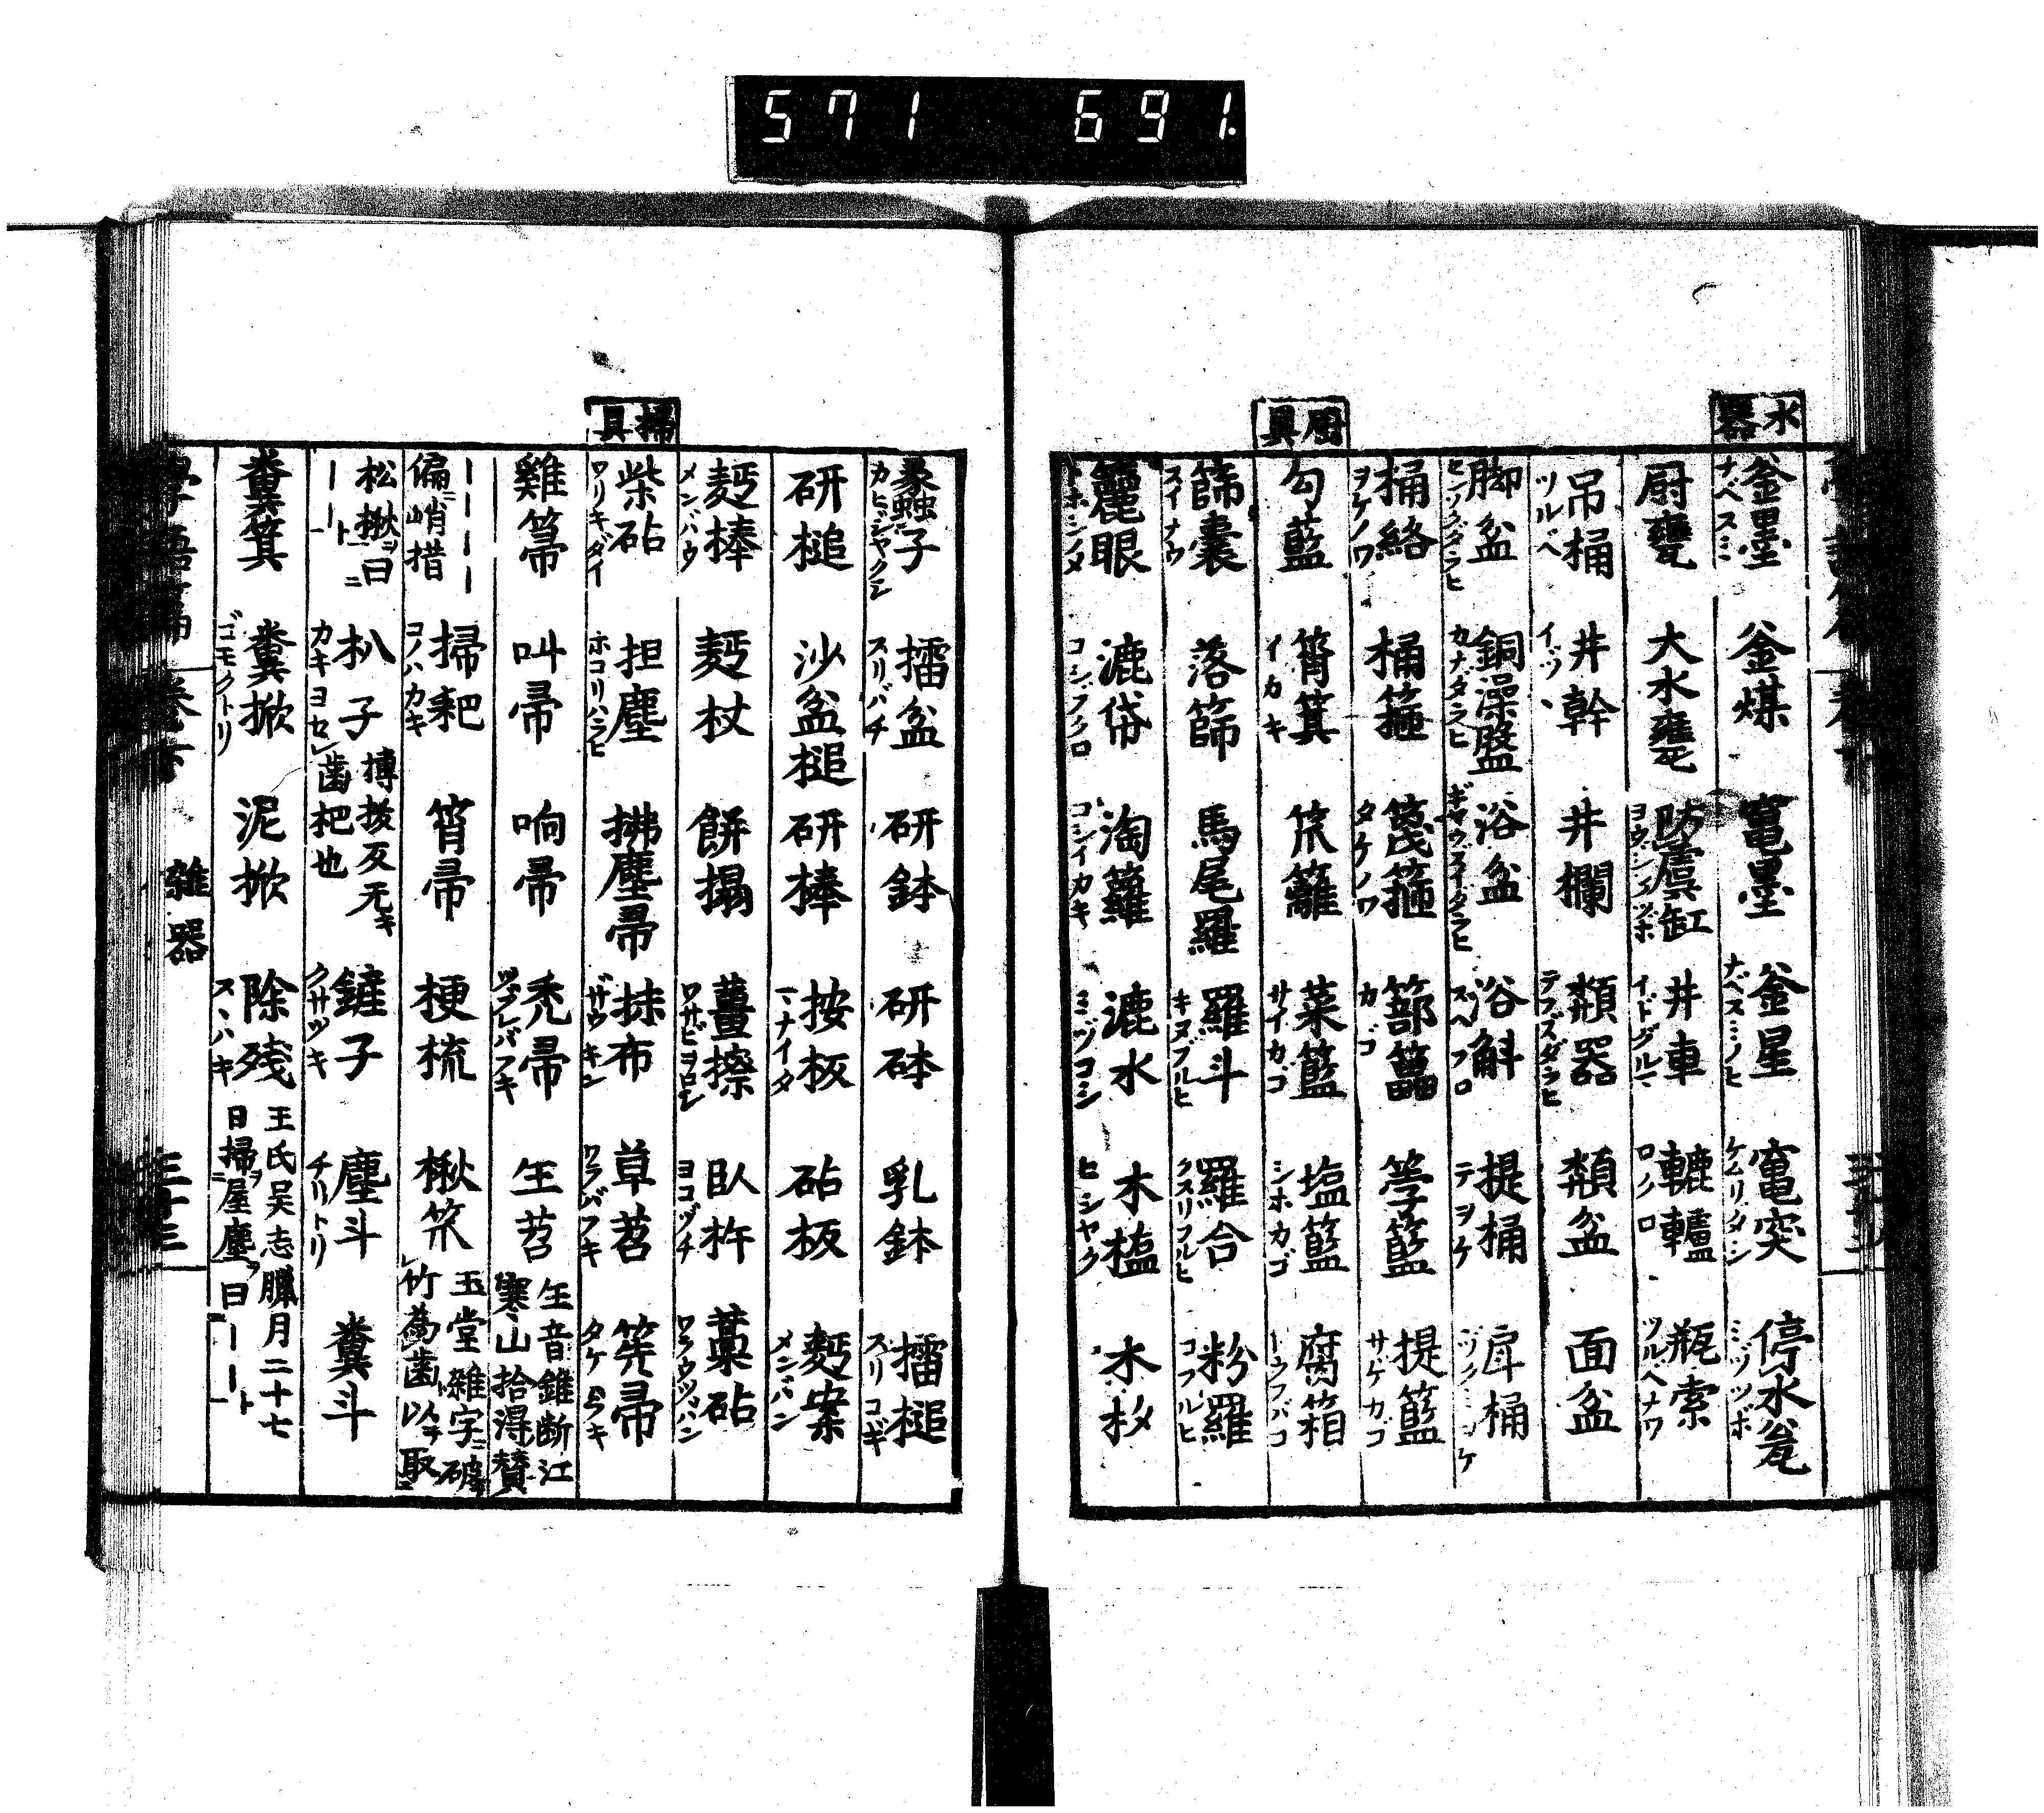 571 691.
水器
釜墨 ナベスミ 釜煤 竃墨 釜星 ナベスミノヒ 竃突 ケムリダシ 停水瓮 ミヅツボ
厨甕 大水甕 防虞缸 ヨウジンミヅツボ 井車 イドグルマ 轆轤 ロクロ 瓶索 ツルベナワ
吊桶 ツルベ 井幹 イヅヽ 井欄 頮器 テフズダラヒ 頮盆 面盆
脚盆 銅澡盤 カナダラヒ 浴盆 ギヤウズイダラヒ 浴斛 スヘフロ 提桶 テヲケ 桶
桶絡 ヲケノワ 桶箍 篾箍 タケノワ 篰 カゴ 籃 提籃 サゲカゴ
厨具
勾藍 筲箕 イカキ 笊籬 菜籃 サイカゴ 塩籃 シホカゴ 腐箱 トウフバコ
篩囊 スイナウ 落篩 馬尾羅 羅斗 キヌブルヒ 羅合 クスリフルヒ 粉羅 コフルヒ
籭眼 トホシノメ 漉帒 コシブクロ 淘蘿 コシイカキ 漉水 ミヅコシ 木榼 ヒシヤク 木杉
蠡子 カヒジヤクシ 擂盆 スリバチ 研鉢 研砵 乳鉢 擂槌 スリコギ
研槌 沙盆槌 研棒 按板 マナイタ 砧板 麪案 メンバン
麪棒 メンバウ 麪杖 餅搨 薑擦 ワサビヲロシ 臥杵 ヨコヅチ 藁砧 ワラウツバン
掃具
柴砧 ワリキダイ 担塵 ホコリハラヒ 拂塵帚 抹布 ザウキン 草苕 ワラバフキ 筅帚 タケバヽキ
雞箒 叫帚 响帚 禿帚 ツブレバフキ 生苕 生音錐断江寒山拾得賛
ーーーー偏ニ峭措 掃耙 コノハカキ 筲帚 梗梳 楸笊 玉堂雜字ニ竹為歯以取
松楸ヲ曰ニーート 朳子 カキヨセ 博拔反无歯杷也 鏟子 クサヅキ 塵斗 チリトリ 糞斗
糞箕 糞掀 ゴモクトリ 泥掀 除残 スヽハキ 王氏吴志臘月二十七日掃ヲ屋塵ヲ曰ーート
雜器